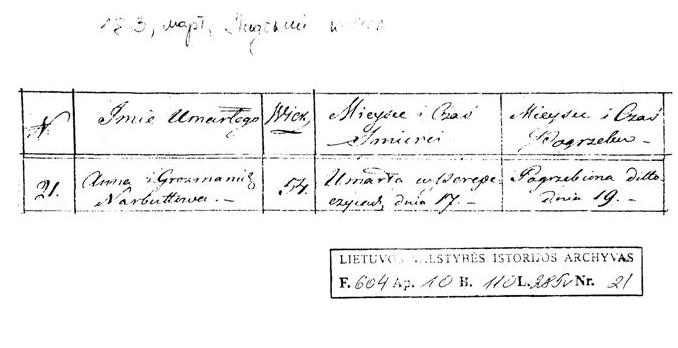 N. Imie Umarłego Wiek, Mieysce i Czas Smierci Mieysce i Czas Pogrzebu
21. Anna z Grozmanich Narbuttowa. 54. Umarła w czycach dnia 17. Pogrzebiona ditto dnia 19.
LIETUVOS VALSTYBĖS ISTORIJOS ARCHYVAS
F. 604 Ap. 10 B. 110 L. 285v Nr. 21